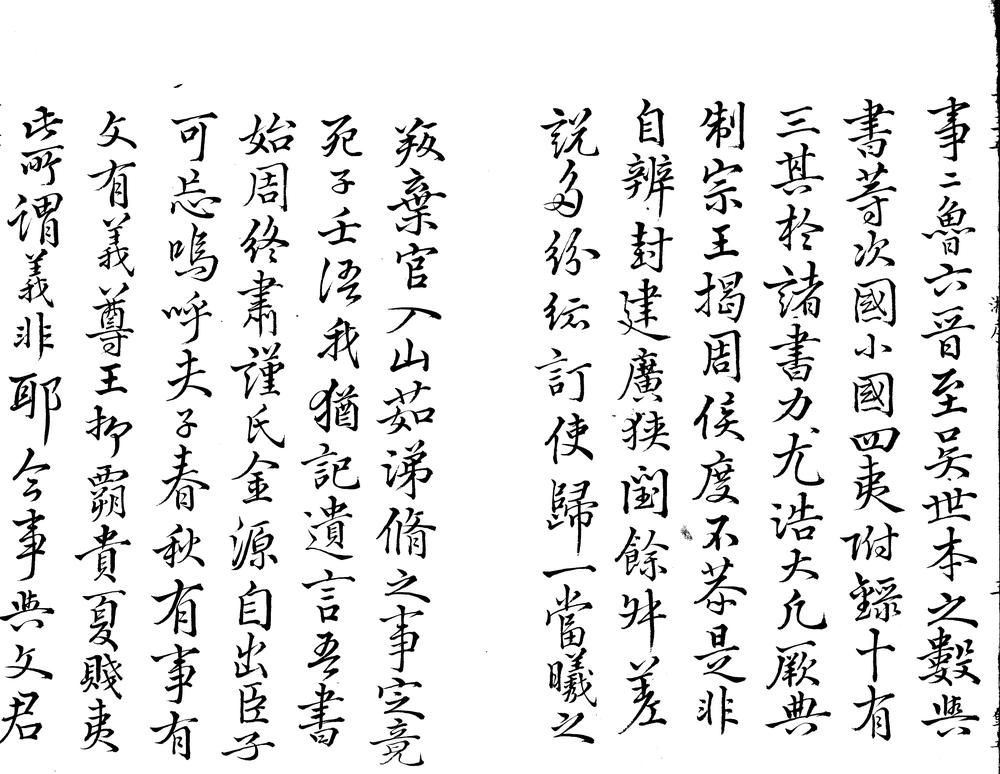 事二魯六晉至吴世本之數與
書䓁次國小國四夷附録十有
三其於諸書力尤浩大凢厥典
制宗王揭周侯度不恭是非
自辨封建廣狭閏餘舛差
説多紛紜訂使歸一當曦之
叛棄官入山茹涕脩之事㝎竟
死子壬浯我猶記遺言吾書
始周終肅謹氏金源自出臣子
可忘嗚呼夫子春秋有事有
文有義尊王抑覇貴夏賤夷
此所謂義非耶今事與文君